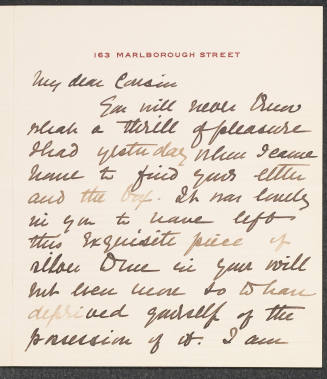 163 MARLBOROUGH STREET
My dear Cousin
You will never know
what a thrill of pleasure
I had yesterday when I came
home to find your letter
and the box. It was lovely
in you to have left
this exquisite piece of
silver to me in your will
but even more so to have
deprived yourself of the
possession of it. I am